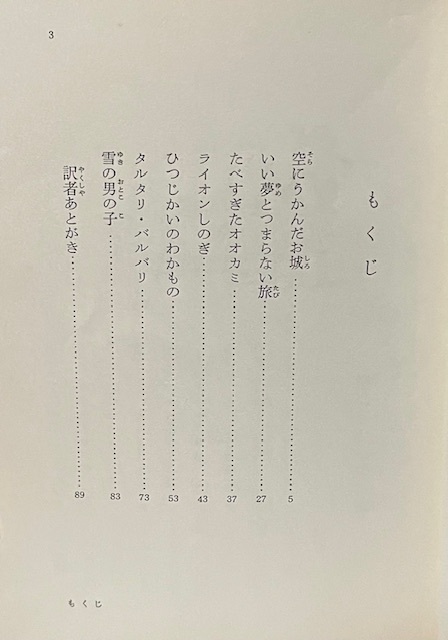 3
もくじ
空にうかんだお城 5
いい夢とつまらない旅 27
たべすぎたオオカミ 37
ライオンしのぎ 43
ひつじかいのわかもの 53
タルタリ・バルバリ 73
雪の男の子 83
訳者あとがき 89
もくじ